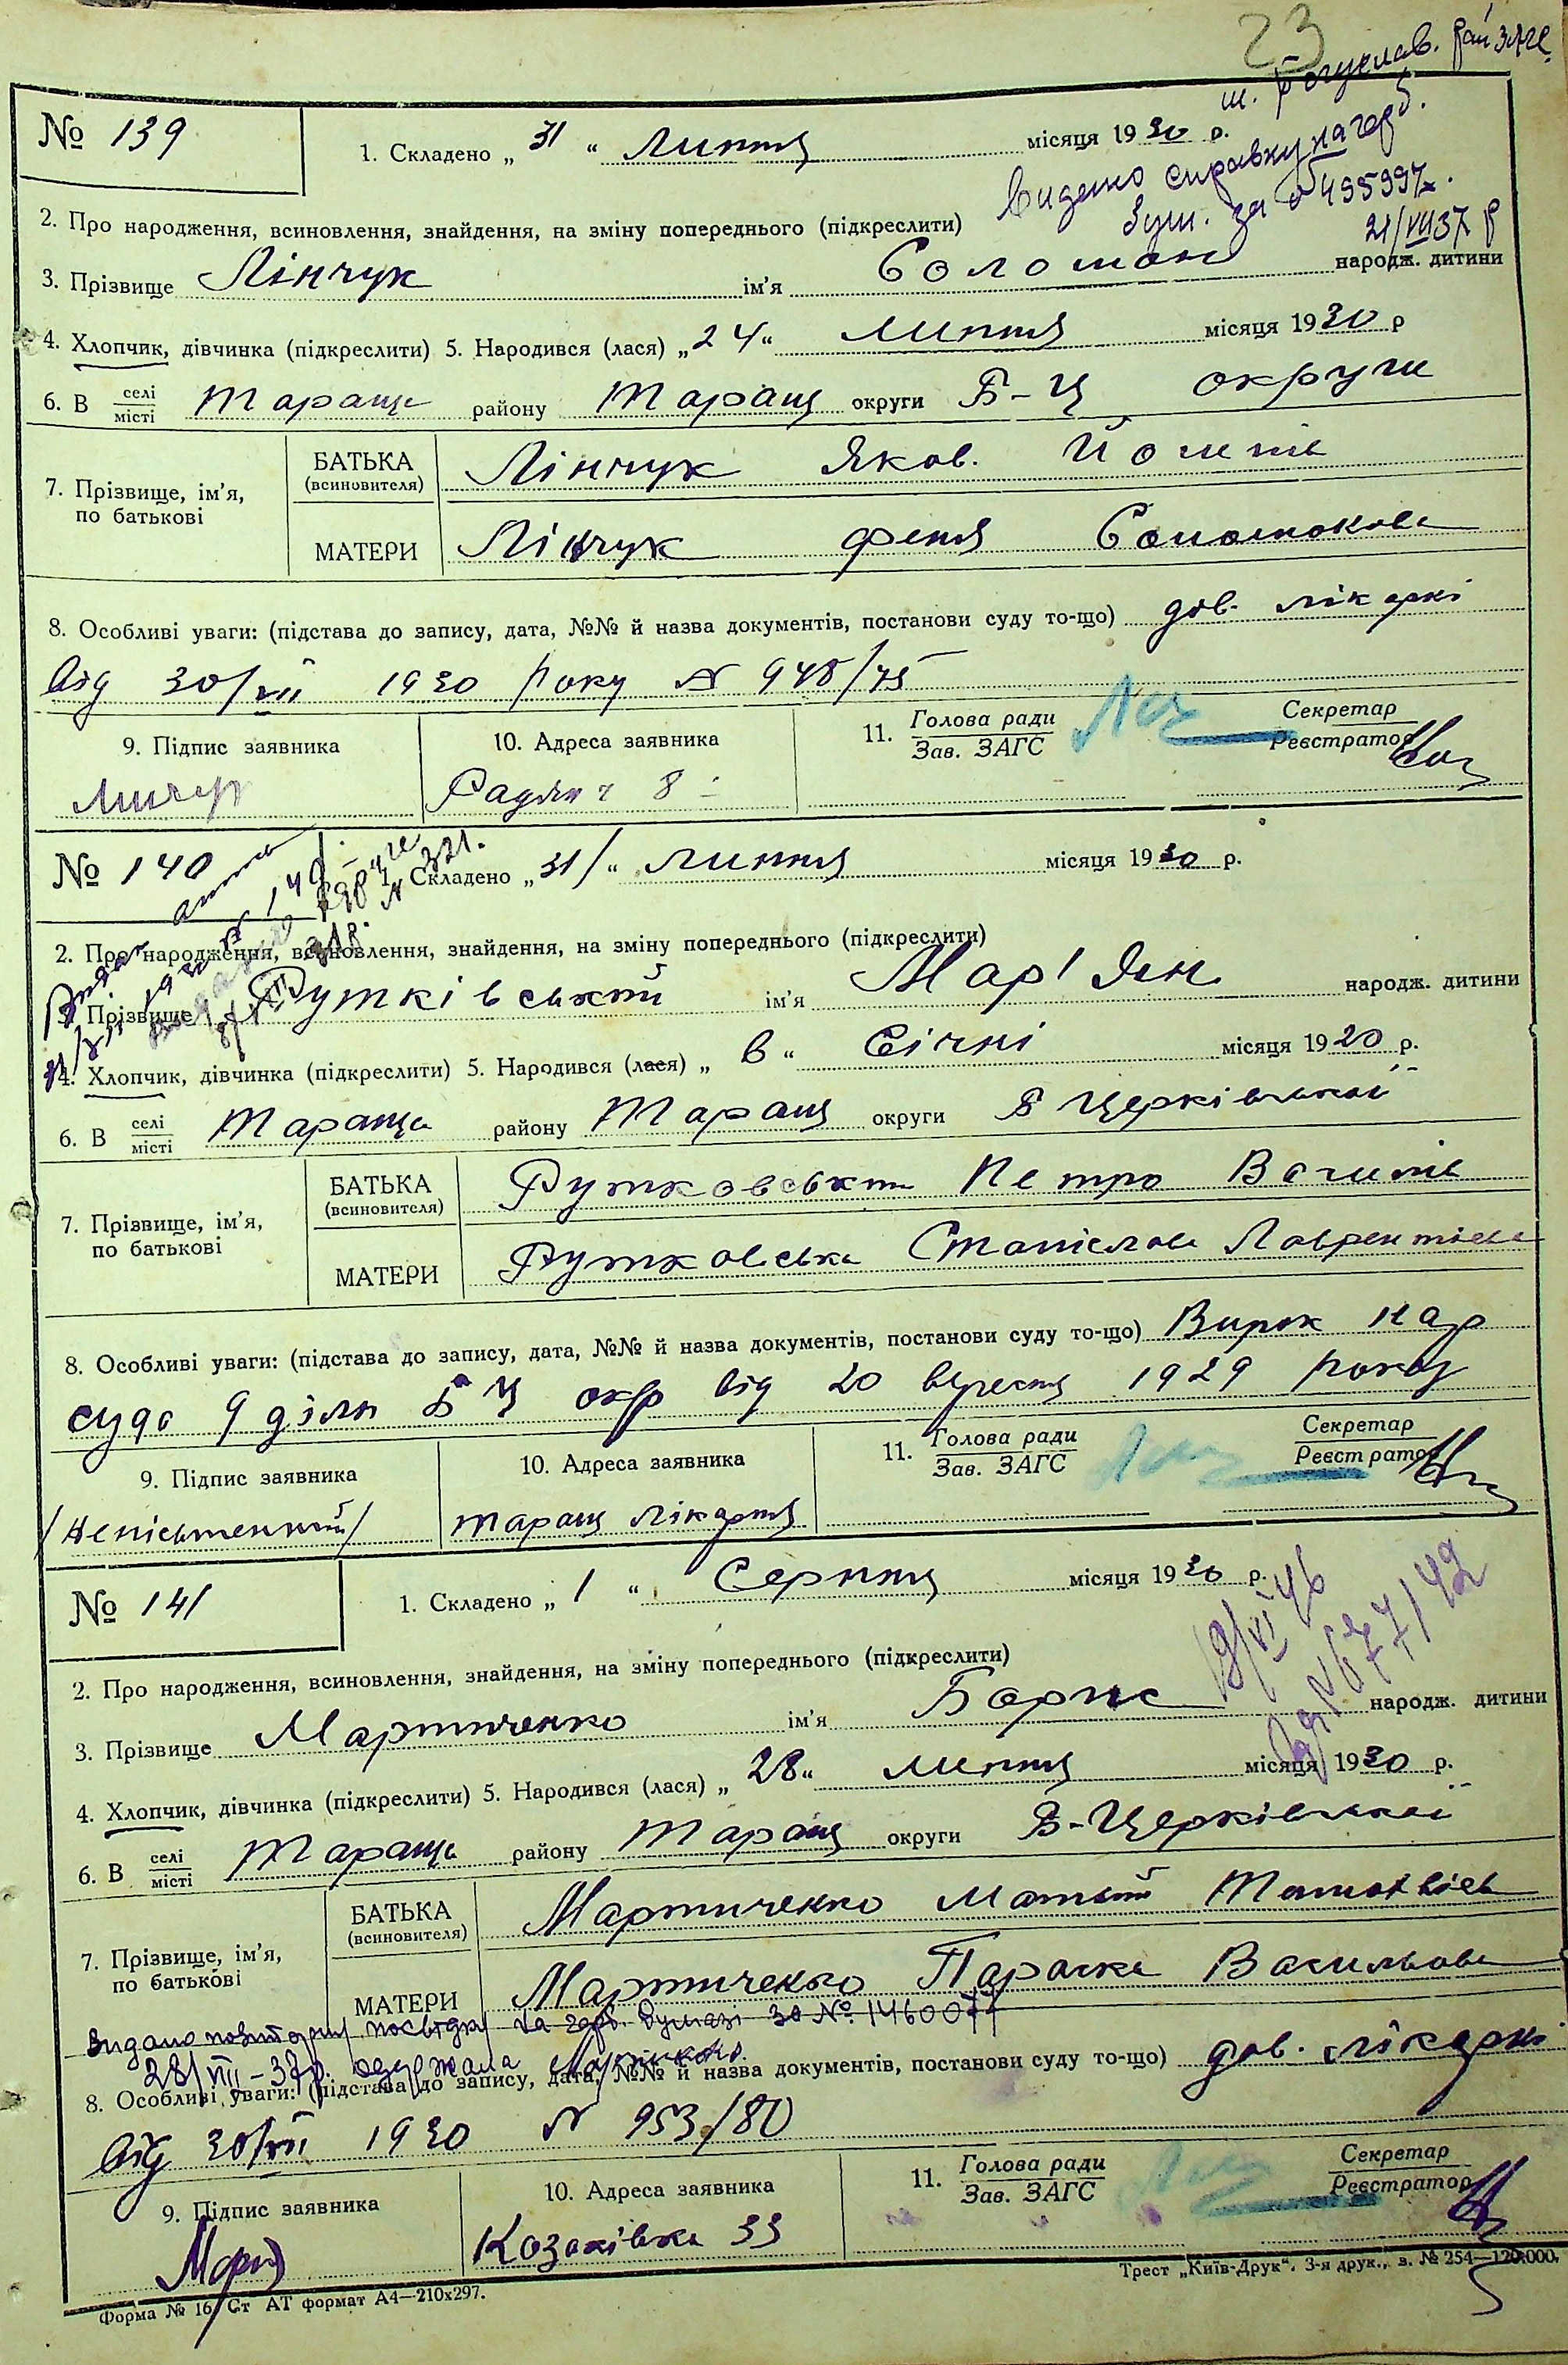 23
м. Богуслав. рай ЗАГС
№ 139
1. Складено „ 31 “ Липня місяця 1930 р.
Видано справку на герб.
за 495997
21/VII 37 р
2. Про народження, всиновлення, знайдення, на зміну попереднього (підкреслити)
3. Прізвище Лінчук ім’я Соломон народж. дитини
4. Хлопчик, дівчинка (підкреслити) 5. Народився (лася) „ 24 “ липня місяця 1930 р
6. В селі/місті Тараща району Таращ округи Б-Ц округи
7. Прізвище, ім’я, по батькові
БАТЬКА (всиновителя) Лінчук Яков.
МАТЕРИ Лінчук Феня
8. Особливі уваги: (підстава до запису, дата, №№ й назва документів, постанови суду то-що) дов. лікарні
від 30/VII 1930 року № 948/75
9. Підпис заявника
10. Адреса заявника
11. Голова ради/Зав. ЗАГС
Секретар/Реєстратор
Радян 8
№ 140
1. Складено „ 31 “ липня місяця 1930 р.
2. Про народження, всиновлення, знайдення, на зміну попереднього (підкреслити)
3. Прізвище Рутківський ім’я Мар'ян народж. дитини
4. Хлопчик, дівчинка (підкреслити) 5. Народився (лася) „ в “ Січні місяця 1920 р.
6. В селі/місті Тараща району Таращ округи Б Церківської
7. Прізвище, ім’я, по батькові
БАТЬКА (всиновителя) Рутковський Петро Василів
МАТЕРИ Рутковська Станіслава Лаврентієва
8. Особливі уваги: (підстава до запису, дата, №№ й назва документів, постанови суду то-що) Вирок нар
суда 9 дільн Б Ц окр від 20 вересня 1929 року
9. Підпис заявника
10. Адреса заявника
11. Голова ради/Зав. ЗАГС
Секретар/Реєстратор
/неписьменний/
Таращ лікарня
№ 141
1. Складено „ 1 “ Серпня місяця 1930 р.
19/VI 46
677/42
2. Про народження, всиновлення, знайдення, на зміну попереднього (підкреслити)
3. Прізвище Мартиченко ім’я Борис народж. дитини
4. Хлопчик, дівчинка (підкреслити) 5. Народився (лася) „ 28 “ липня місяця 1930 р.
6. В селі/місті Тараща району Таращ округи Б-Церківської
7. Прізвище, ім’я, по батькові
БАТЬКА (всиновителя) Мартиченко
МАТЕРИ Мартиченко Параска Васильова
Видано повторну посвідку на герб. бумазі за № 1460077
28/VII-37р. одержала
8. Особливі уваги: (підстава до запису, дата, №№ й назва документів, постанови суду то-що) дов. лікарні
від 30/VII 1930 № 953/80
9. Підпис заявника
10. Адреса заявника
11. Голова ради/Зав. ЗАГС
Секретар/Реєстратор
Козаківка 33
Форма № 16 Ст АТ формат А4—210x297.
Трест „Київ-Друк“. 3-я друк., з. № 254—120.000.